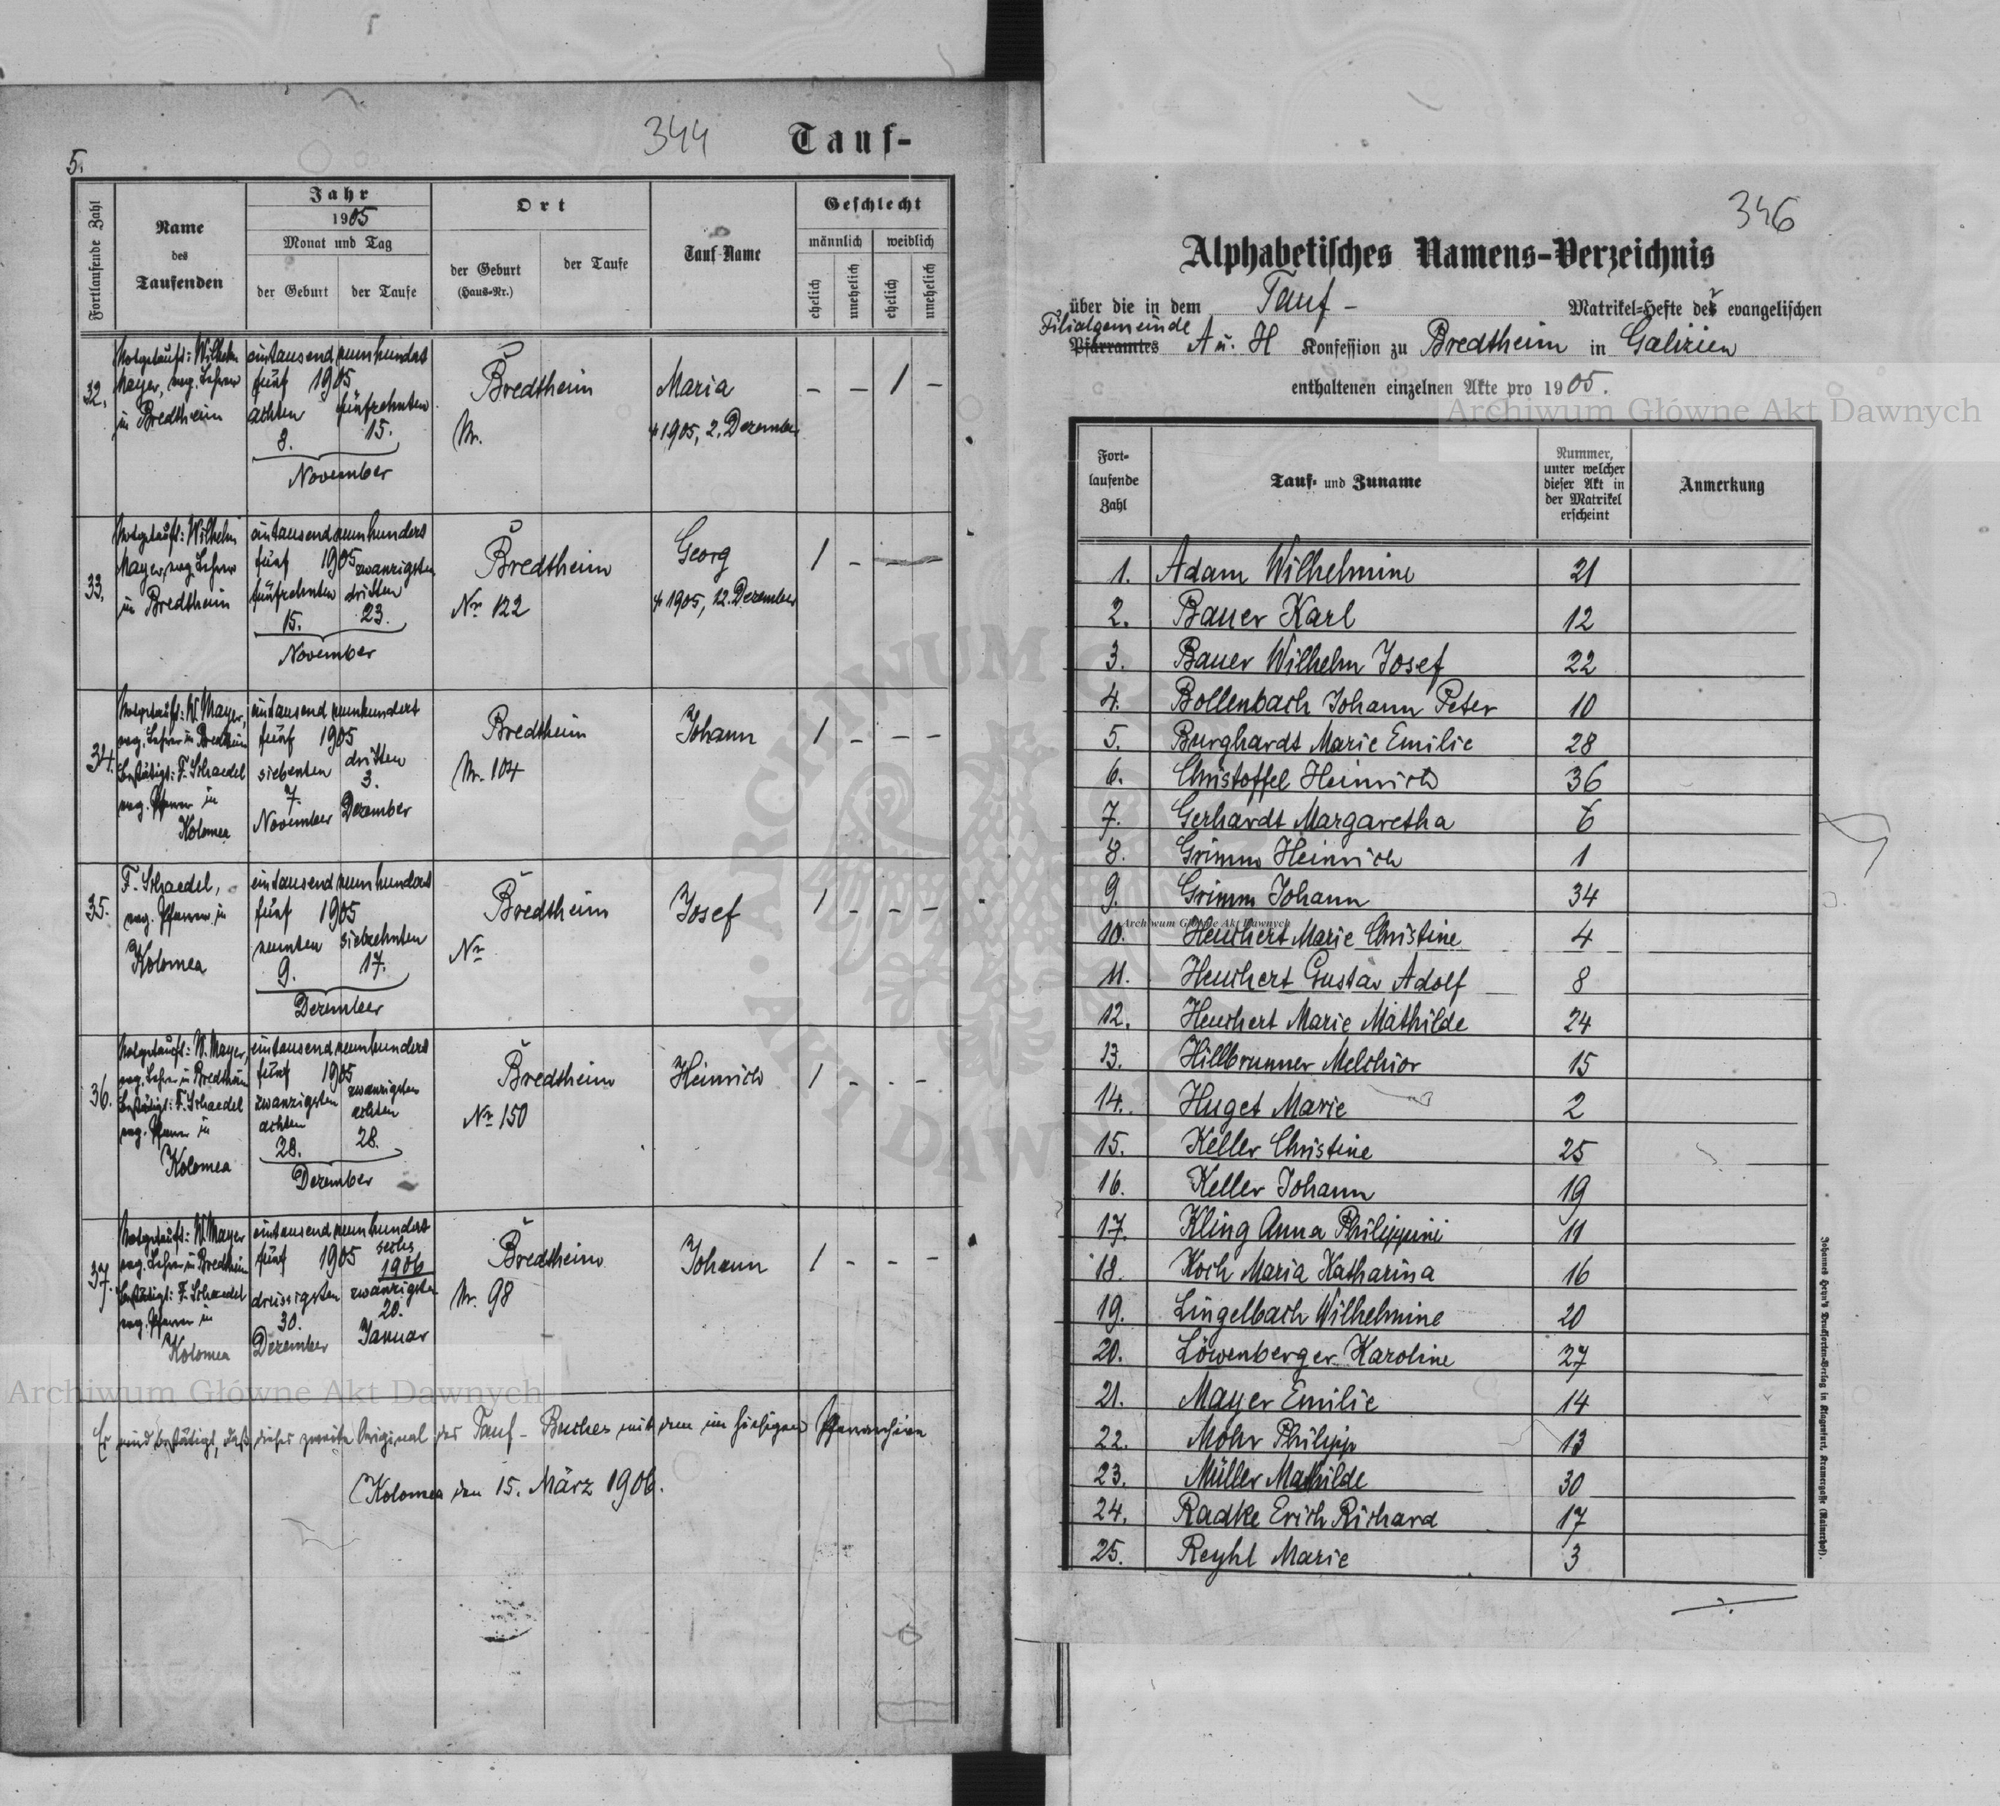 344
Tauf-
5.
Fortlaufende Zahl
Name
des
Taufenden
Jahr
1905
Monat und Tag
der Geburt
der Taufe
Ort
der Geburt
(Haus-Nr.)
der Taufe
Tauf-Name
Geschlecht
männlich
weiblich
ehelich
unehelich
ehelich
unehelich
32.
Notgetauft: Wilhelm
Mayer, evg. Lehrer
in Bredtheim
eintausend neunhundert
fünf 1905
achten fünfzehnten
8. 15.
November
Bredtheim
Nr.
Maria
1905, 2. Dezember
– – 1 –
33.
Notgetauft: Wilhelm
Mayer, evg. Lehrer
in Bredtheim
eintausend neunhundert
fünf 1905 zwanzigsten
fünfzehnten dritten
15. 23.
November
Bredtheim
Nr 122
Georg
1905, 12. Dezember
1 – – –
34.
Notgetauft: W. Mayer,
evg. Lehrer in Bredtheim
bestätigt: F. Schaedel
evg. Pfarrer in
Kolomea
eintausend neunhundert
fünf 1905
siebenten dritten
7. 3.
November Dezember
Bredtheim
Nr. 104
Johann
1 – – –
35.
F. Schaedel,
evg. Pfarrer in
Kolomea
eintausend neunhundert
fünf 1905
neunten siebzehnten
9. 17.
Dezember
Bredtheim
Nr
Josef
1 – – –
36.
Notgetauft: W. Mayer,
evg. Lehrer in Bredtheim
bestätigt: F. Schaedel
evg. Pfarrer in
Kolomea
eintausend neunhundert
fünf 1905
zwanzigsten zwanzigsten
achten achten
28. 28.
Dezember
Bredtheim
Nr 150
Heinrich
1 – – –
37.
Notgetauft: W. Mayer
evg. Lehrer in Bredtheim
bestätigt: F. Schaedel
evg. Pfarrer in
Kolomea
eintausend neunhundert
fünf 1905 sechs
1906
dreissigsten zwanzigsten
30. 20.
Dezember Januar
Bredtheim
Nr. 98
Johann
1 – – –
Es wird bestätigt, daß dieses zweite Original des Tauf-Buches mit dem im hiesigen Pfarrarchive
Kolomea den 15. März 1906.
346
Alphabetisches Namens-Verzeichnis
über die in dem Tauf- Matrikel-Hefte der evangelischen
Filialgemeinde
Pfarramtes A u. H Konfession zu Bredtheim in Galizien
enthaltenen einzelnen Akte pro 1905.
Fort-
laufende
Zahl
Tauf- und Zuname
Nummer,
unter welcher
dieser Akt in
der Matrikel
erscheint
Anmerkung
1. Adam Wilhelmine 21
2. Bauer Karl 12
3. Bauer Wilhelm Josef 22
4. Bollenbach Johann Peter 10
5. Burghardt Marie Emilie 28
6. Christoffel Heinrich 36
7. Gerhardt Margaretha 6
8. Grimm Heinrich 1
9. Grimm Johann 34
10. Heuchert Marie Christine 4
11. Heuchert Gustav Adolf 8
12. Heuchert Marie Mathilde 24
13. Hillbrunner Melchior 15
14. Huget Marie 2
15. Keller Christine 25
16. Keller Johann 19
17. Kling Anna Philippini 11
18. Koch Maria Katharina 16
19. Lingelbach Wilhelmine 20
20. Löwenberger Karoline 27
21. Mayer Emilie 14
22. Mohr Philipp 13
23. Müller Mathilde 30
24. Radke Erich Richard 17
25. Reyhl Marie 3
Johannes Heyn's Drucksorten-Verlag in Klagenfurt, Kramergasse (Rainerhof).
Archiwum Główne Akt Dawnych
Archiwum Główne Akt Dawnych
Archiwum Główne Akt Dawnych